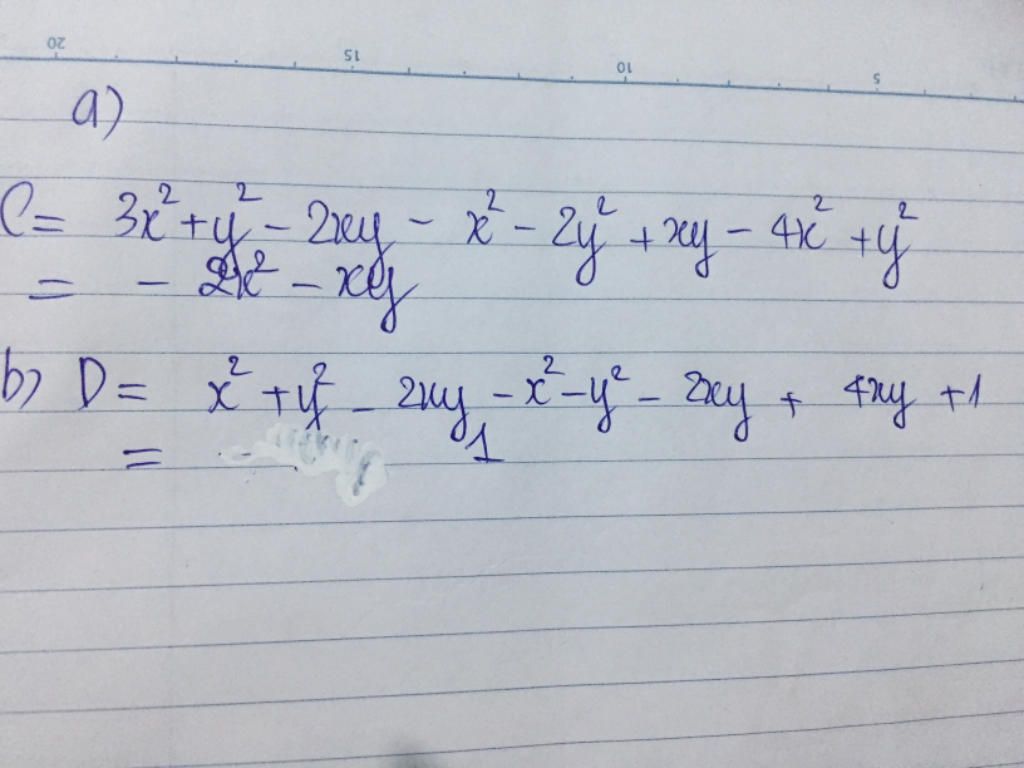 20 15 10 5
a)
C = 3x² + y² - 2xy - x² - 2y² + xy - 4x² + y²
= - 2x² - xy
b) D = x² + y² - 2xy - x² - y² - 2xy + 4xy + 1
= 1